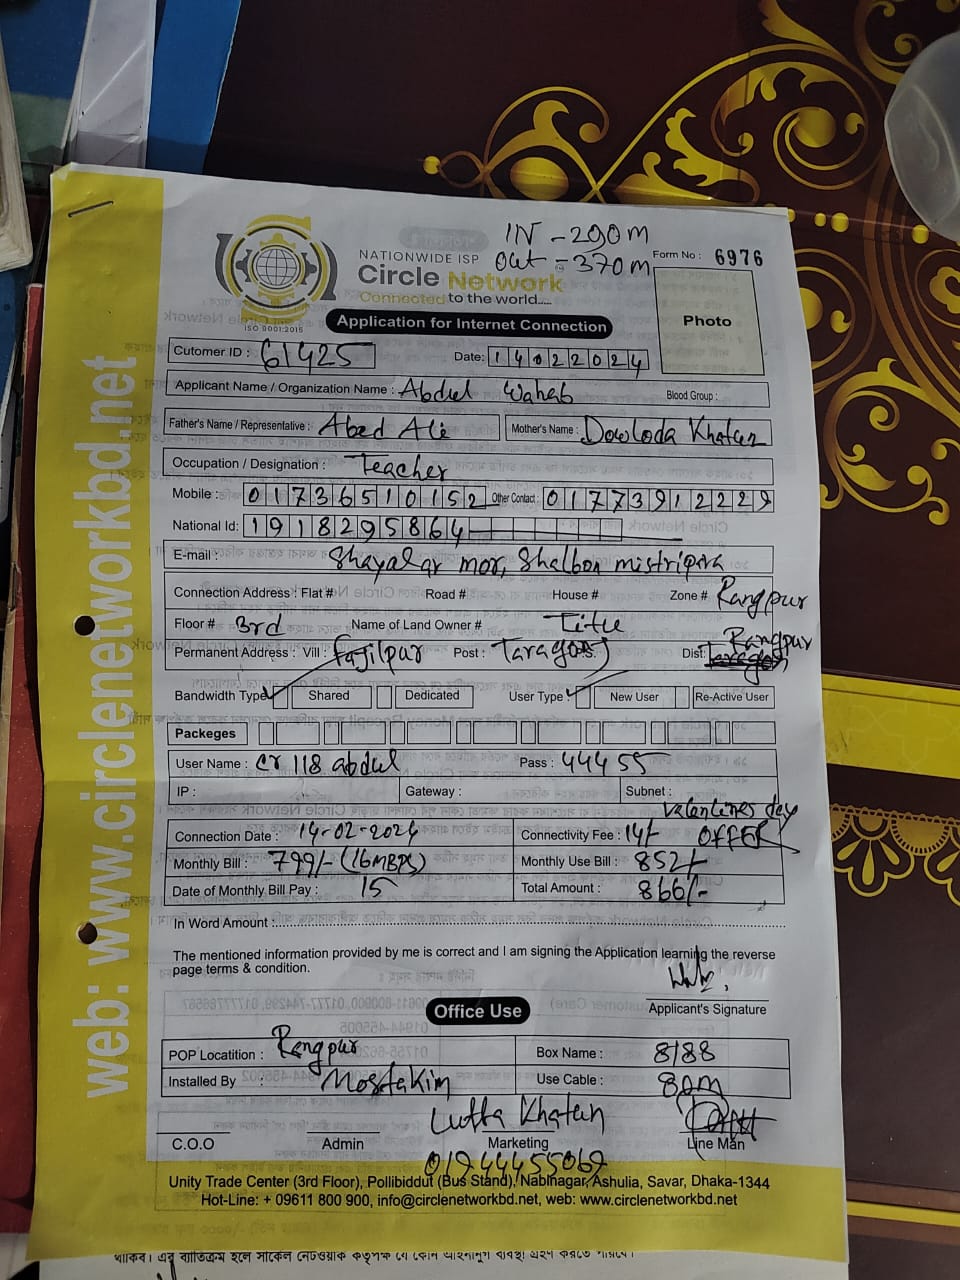 IN - 290m
Out - 370m
Form No : 6976
NATIONWIDE ISP
Circle Network
Connected to the world.....
ISO 9001:2015
Photo
Application for Internet Connection
Cutomer ID : 61425 Date: 14022024
Applicant Name / Organization Name : Abdul Wahab Blood Group :
Father's Name / Representative : Abed Ali Mother's Name : Dowloda Khatun
Occupation / Designation : Teacher
Mobile : 01736510152 Other Contact : 01773912229
National Id: 1918295864
E-mail : Shayalar mor, Shalbon mistripara
Connection Address : Flat # Road # House # Zone # Rangpur
Floor # 3rd Name of Land Owner # Title
Permanent Address : Vill : Fajilpur Post : Taragonj P.S. Dist: Rangpur
Bandwidth Type Shared Dedicated User Type : New User Re-Active User
Packeges
User Name : cr 118 abdul Pass : 444 55
IP : Gateway : Subnet :
valentines day
Connection Date : 14-02-2024 Connectivity Fee : 14/- OFFER
Monthly Bill : 799/- (16MBPS) Monthly Use Bill : 852/-
Date of Monthly Bill Pay : 15 Total Amount : 866/-
In Word Amount :
The mentioned information provided by me is correct and I am signing the Application learning the reverse
page terms & condition.
Applicant's Signature
Office Use
POP Locatition : Rangpur Box Name : 8188
Installed By : Mostakim Use Cable : 80m
Lutfa Khatun
C.O.O Admin Marketing Line Man
Unity Trade Center (3rd Floor), Pollibiddut (Bus Stand), Nabinagar, Ashulia, Savar, Dhaka-1344
Hot-Line: + 09611 800 900, info@circlenetworkbd.net, web: www.circlenetworkbd.net
web: www.circlenetworkbd.net
থাকিব। এর ব্যতিক্রম হলে সার্কেল নেটওয়ার্ক কতৃপক্ষ যে কোন আইনানুগ ব্যবস্থা গ্রহণ করতে পারবে।